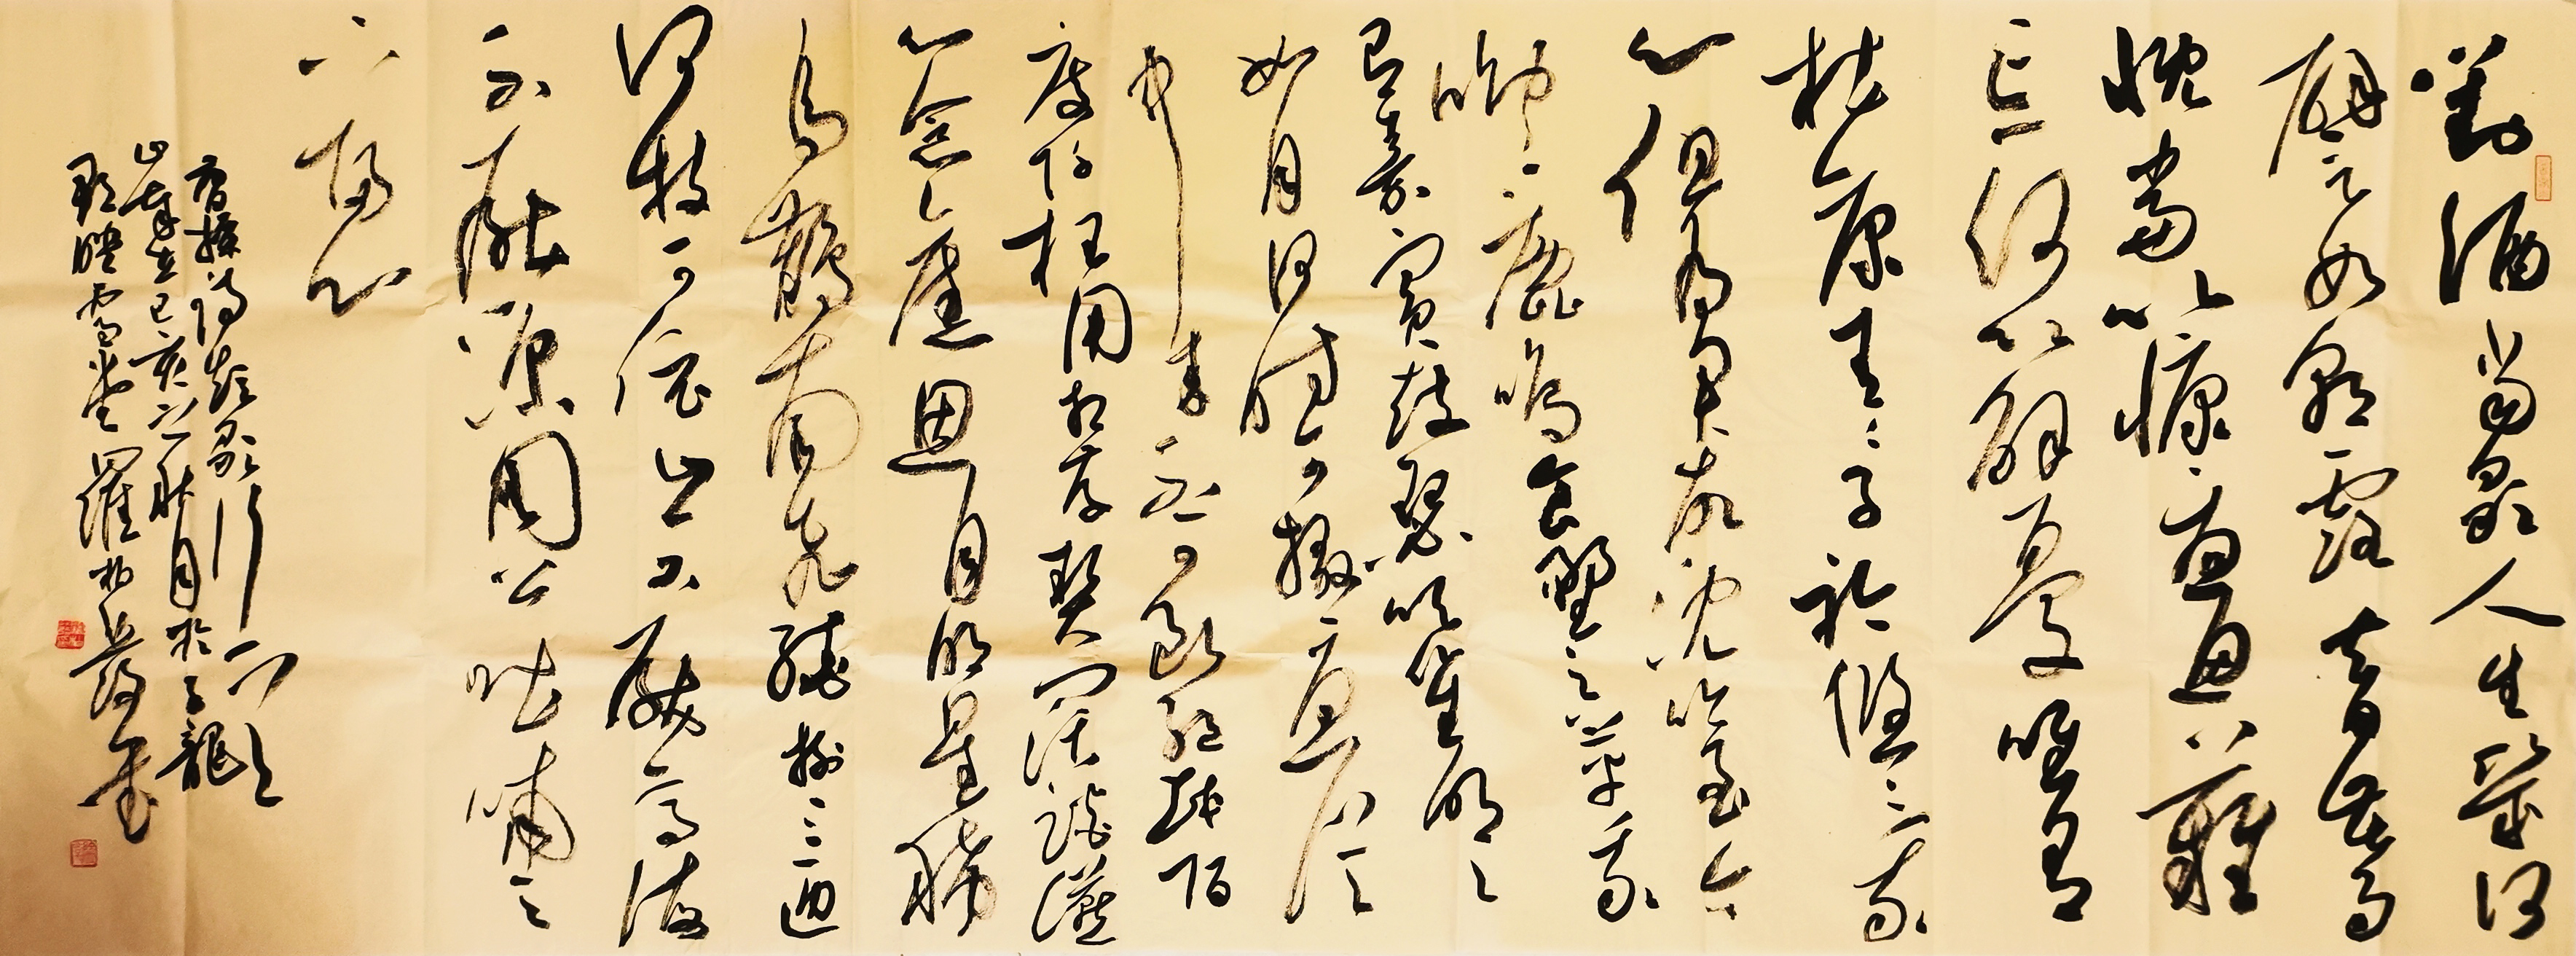 對酒當歌人生幾何
譬如朝露去日苦多
慨當以慷憂思難
忘何以解憂唯有
杜康青青子衿悠悠我
心但為君故沈吟至今
呦呦鹿鳴食野之苹我
有嘉賓鼓瑟吹笙明明
如月何時可掇憂從
中來不可斷絕越陌
度阡枉用相存契闊談讌
心念舊恩月明星稀
烏鵲南飛繞樹三匝
何枝可依山不厭高海
不厭深周公吐哺天
下歸心
曹操詩短歌行一首
歲在己亥之秋月於子龍
羅